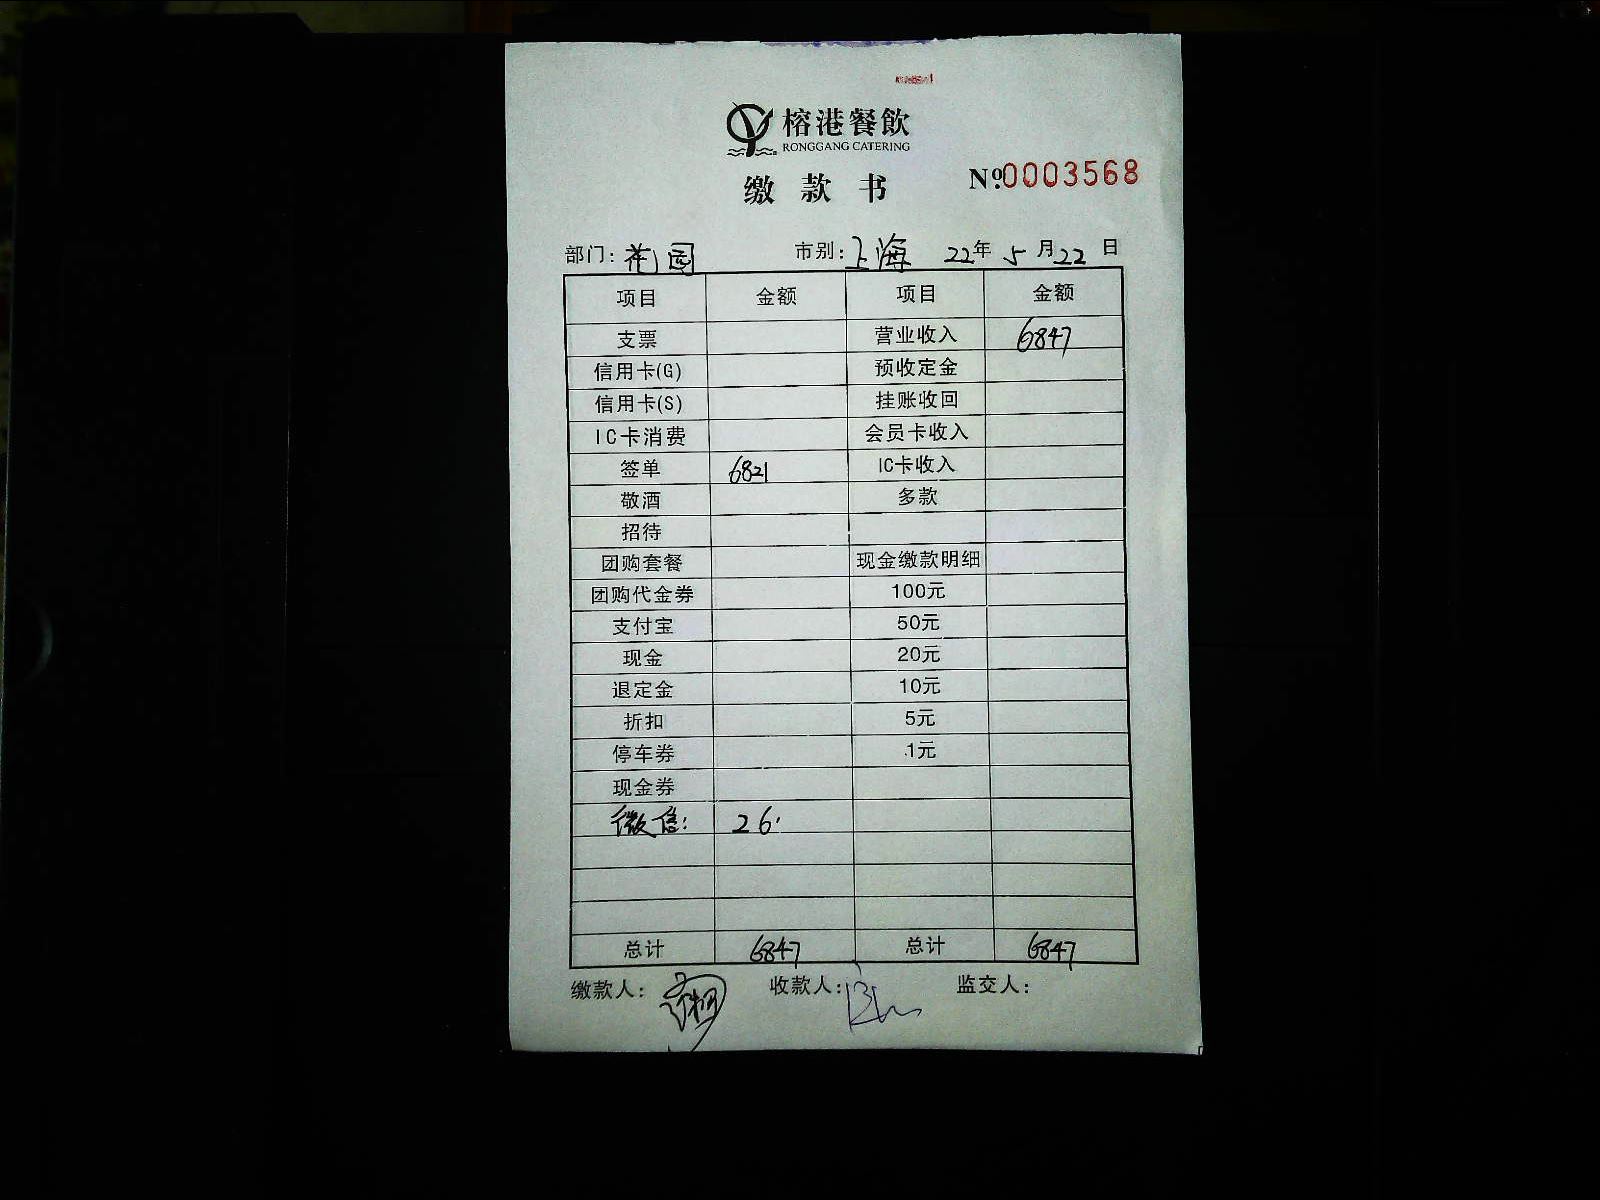 榕港餐飲
RONGGANG CATERING
缴款书 Nº.0003568
部门: 花园 市别: 上海 22年 5月 22日
项目 金额 项目 金额
支票 营业收入 6847
信用卡(G) 预收定金
信用卡(S) 挂账收回
IC卡消费 会员卡收入
签单 6821 IC卡收入
敬酒 多款
招待
团购套餐 现金缴款明细
团购代金券 100元
支付宝 50元
现金 20元
退定金 10元
折扣 5元
停车券 1元
现金券
微信: 26
总计 6847 总计 6847
缴款人: 收款人: 监交人: